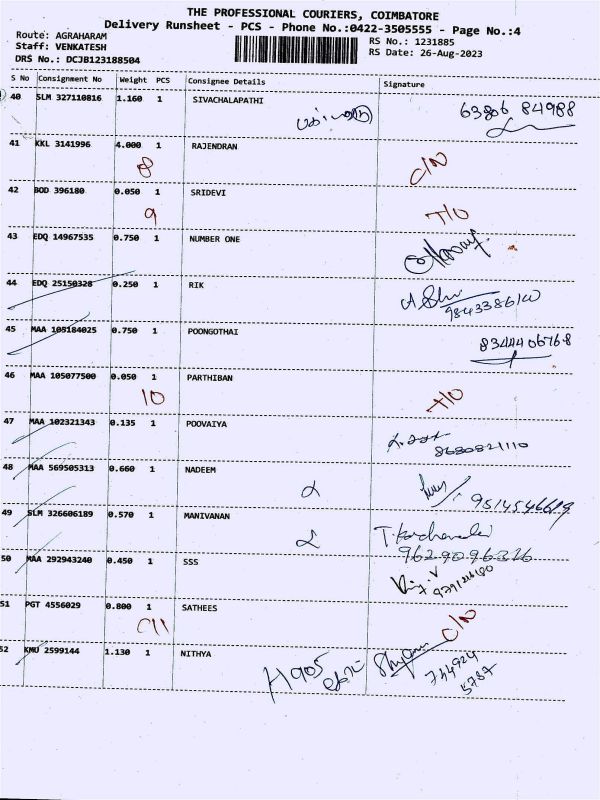 THE PROFESSIONAL COURIERS, COIMBATORE
Delivery Runsheet - PCS - Phone No.:0422-3505555 - Page No.:4
Route: AGRAHARAM RS No.: 1231885
Staff: VENKATESH RS Date: 26-Aug-2023
DRS No.: DCJB123188504
S No Consignment No Weight PCS Consignee Details Signature
40 SLM 327110816 1.160 1 SIVACHALAPATHI
63806 84988
41 KKL 3141996 4.000 1 RAJENDRAN
8 C/N
42 BOD 396180 0.050 1 SRIDEVI
9 T/O
43 EDQ 14967535 0.750 1 NUMBER ONE
44 EDQ 25150328 0.250 1 RIK
45 MAA 105184025 0.750 1 POONGOTHAI
8344406768
46 MAA 105077500 0.050 1 PARTHIBAN
10
47 MAA 102321343 0.135 1 POOVAIYA
8680821110
48 MAA 569505313 0.660 1 NADEEM
49 SLM 326606189 0.570 1 MANIVANAN
9629096326
50 MAA 292943240 0.450 1 SSS
51 PGT 4556029 0.800 1 SATHEES
C/N
52 KMU 2599144 1.130 1 NITHYA
H905
744924
5787